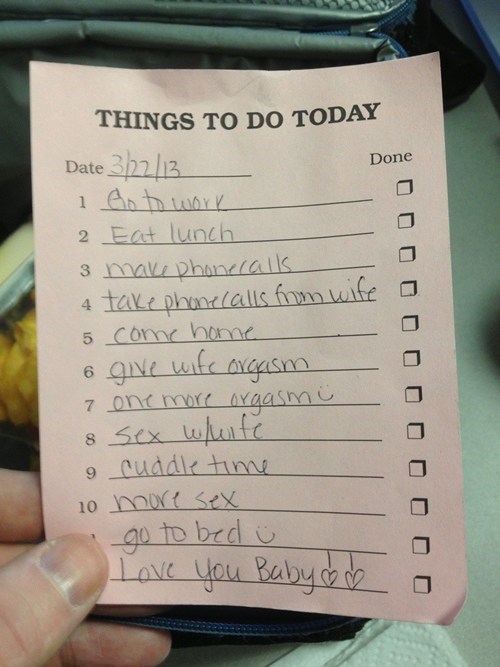 THINGS TO DO TODAY
Date 3/22/13 Done
1 Go to work
2 Eat lunch
3 make phonecalls
4 take phonecalls from wife
5 come home
6 give wife orgasm
7 one more orgasm
8 Sex w/wife
9 cuddle time
10 more sex
go to bed
Love you Baby